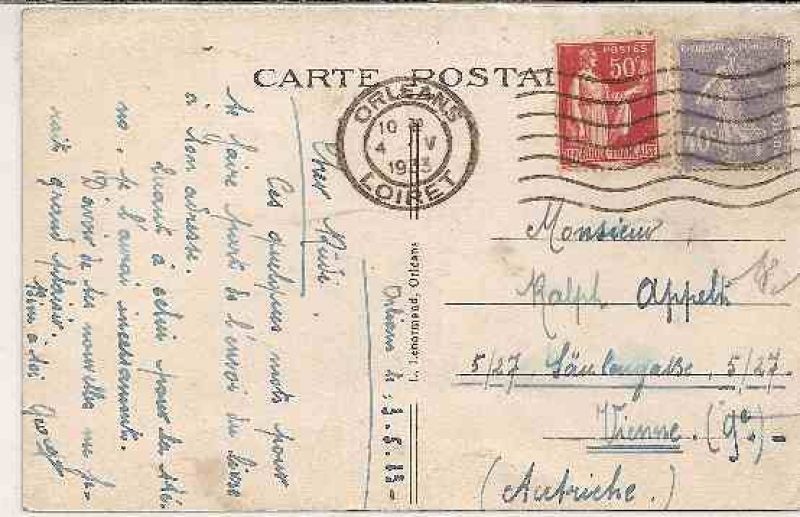 CARTE POSTAL
ORLEANS
10 30
4 V
1933
LOIRET
POSTES
50c
REPUBLIQUE FRANÇAISE
POSTES
40c
L. Lenormand, Orléans
Orléans le 3.5.
Cher
Ces quelques mots pour
te faire part de l'envoi du livre
à ton adresse.
Quant à celui pour les
no, je l'aurai incessamment.
D'avoir de tes nouvelles me fe-
rait grand plaisir.
Bien à toi
Monsieur
Ralph Appelt
5/27 Säulengasse, 5/27.
Vienne. (9e.)
(Autriche.)